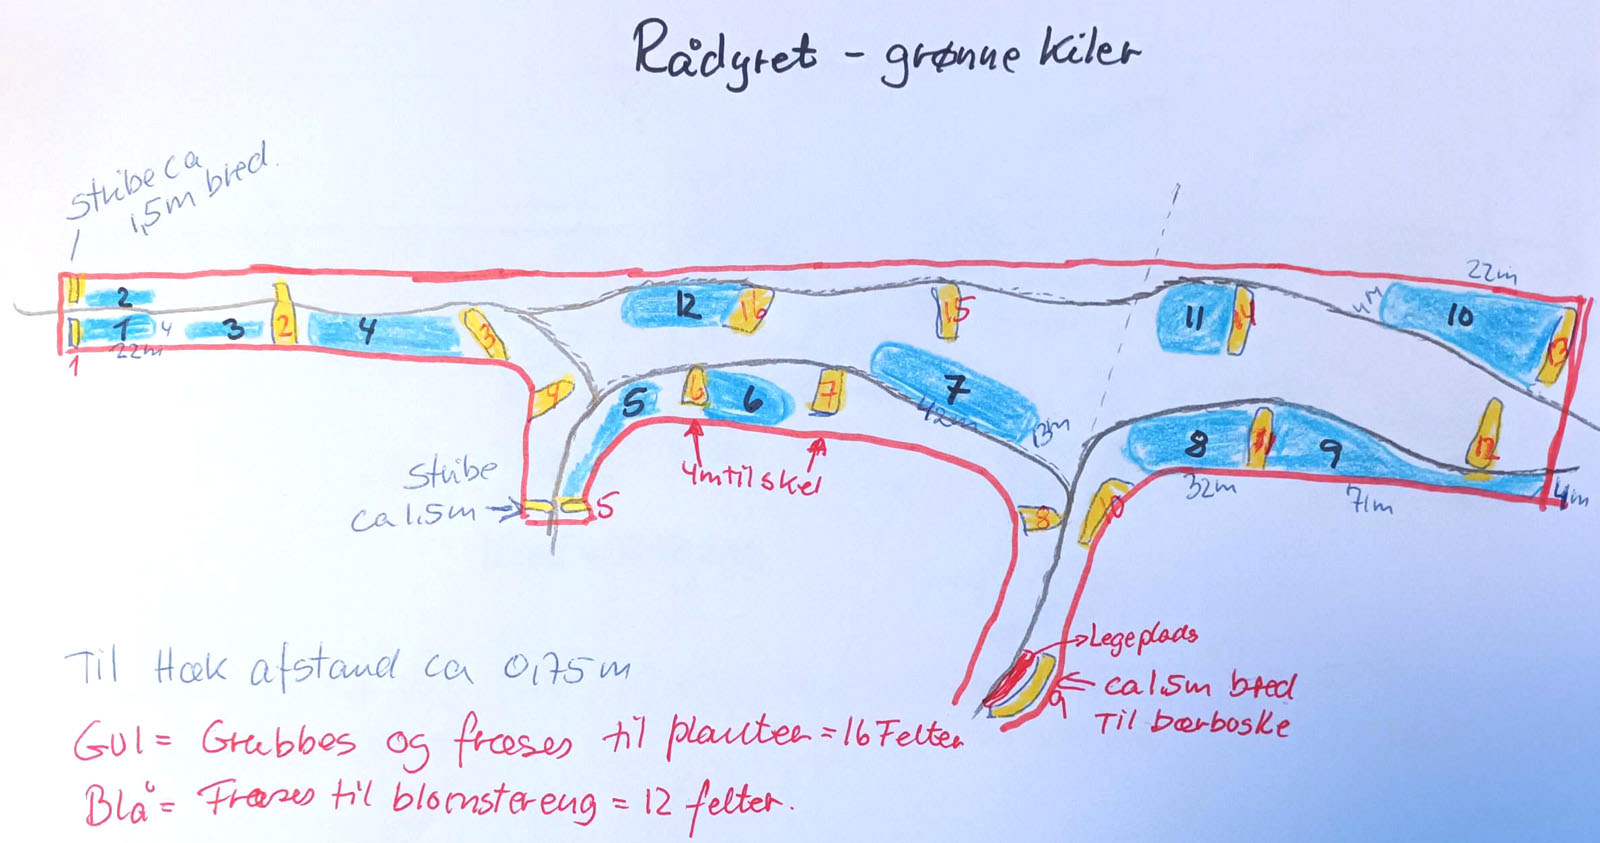 Rådyret - grønne kiler
stribe ca
1,5m bred.
22m
4M
2
1
4
3
2
4
3
22m
1
12
16
15
11
14
10
13
4
5
6
6
7
7
42m
13m
8
11
9
12
32m
71m
4m
4m til skel
Stribe
ca 1,5m
5
8
10
Legeplads
ca 1,5m bred
9
Til bærboske
Til Hæk afstand ca 0,75m
Gul = Grubbes og fræses til planter = 16 Felter
Blå = Fræses til blomstereng = 12 felter.